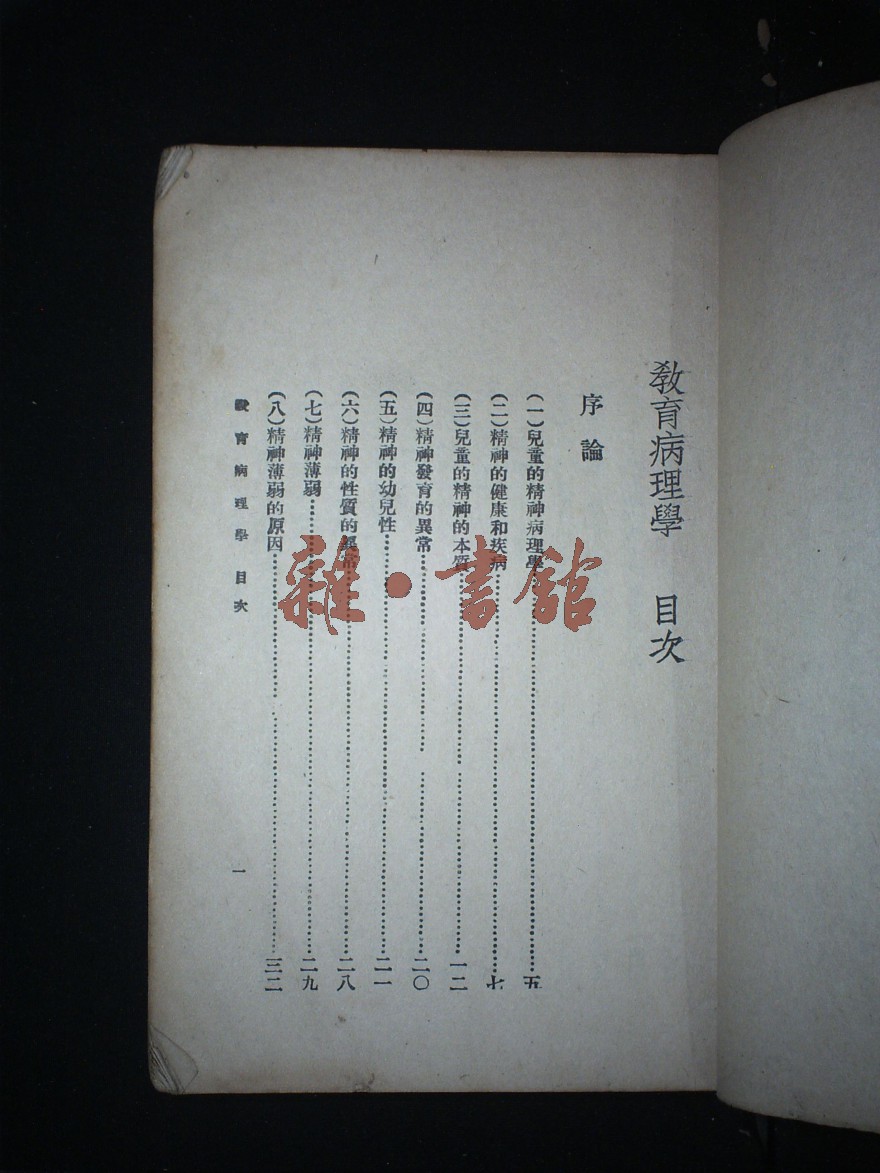 教育病理學　目次
序論
(一)兒童的精神病理學……五
(二)精神的健康和疾病……七
(三)兒童的精神的本質……一二
(四)精神發育的異常……二〇
(五)精神的幼兒性……二一
(六)精神的性質的異常……二八
(七)精神薄弱……二九
(八)精神薄弱的原因……三二
教育病理學　目次
一
雜·書舘